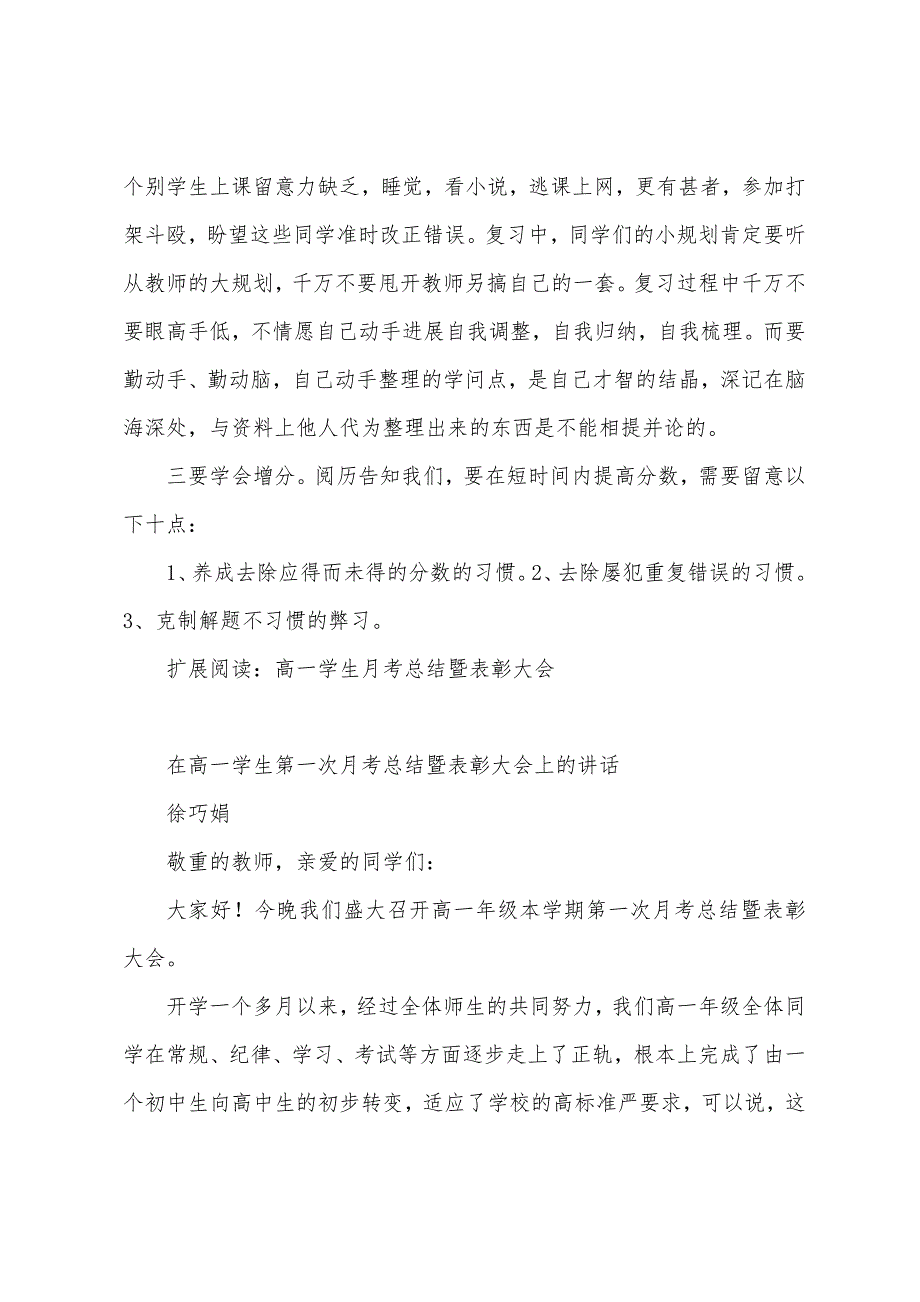 个别学生上课留意力缺乏，睡觉，看小说，逃课上网，更有甚者，参加打
架斗殴，盼望这些同学准时改正错误。复习中，同学们的小规划肯定要听
从教师的大规划，千万不要甩开教师另搞自己的一套。复习过程中千万不
要眼高手低，不情愿自己动手进展自我调整，自我归纳，自我梳理。而要
勤动手、勤动脑，自己动手整理的学问点，是自己才智的结晶，深记在脑
海深处，与资料上他人代为整理出来的东西是不能相提并论的。
三要学会增分。阅历告知我们，要在短时间内提高分数，需要留意以
下十点：
1、养成去除应得而未得的分数的习惯。2、去除屡犯重复错误的习惯。
3、克制解题不习惯的弊习。
扩展阅读：高一学生月考总结暨表彰大会
在高一学生第一次月考总结暨表彰大会上的讲话
徐巧娟
敬重的教师，亲爱的同学们：
大家好！今晚我们盛大召开高一年级本学期第一次月考总结暨表彰
大会。
开学一个多月以来，经过全体师生的共同努力，我们高一年级全体同
学在常规、纪律、学习、考试等方面逐步走上了正轨，根本上完成了由一
个初中生向高中生的初步转变，适应了学校的高标准严要求，可以说，这